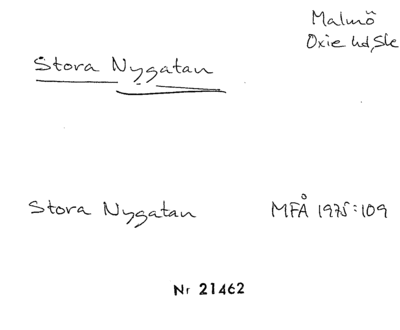 Malmö
Oxie hd, Ske
Stora Nygatan
Stora Nygatan MFÅ 1975:109
Nr 21462